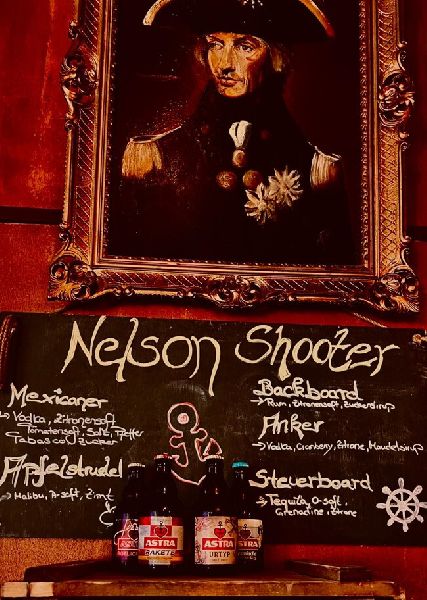 Nelson Shooter
Mexicaner
Vodka, Zitronensaft
Tomatensaft, Salz, Pfeffer
Tabasco, Zucker
Apfelstrudel
Malibu, A-saft, Zimt
Backboard
Rum, Zitronensaft, Zuckersirup
Anker
Vodka, Cranberry, Zitrone, Mandelsirup
Steuerboard
Tequila, O-saft,
Grenadine, Zitrone
ASTRA
ASTRA
RAKETE
ASTRA
URTYP
ASTRA